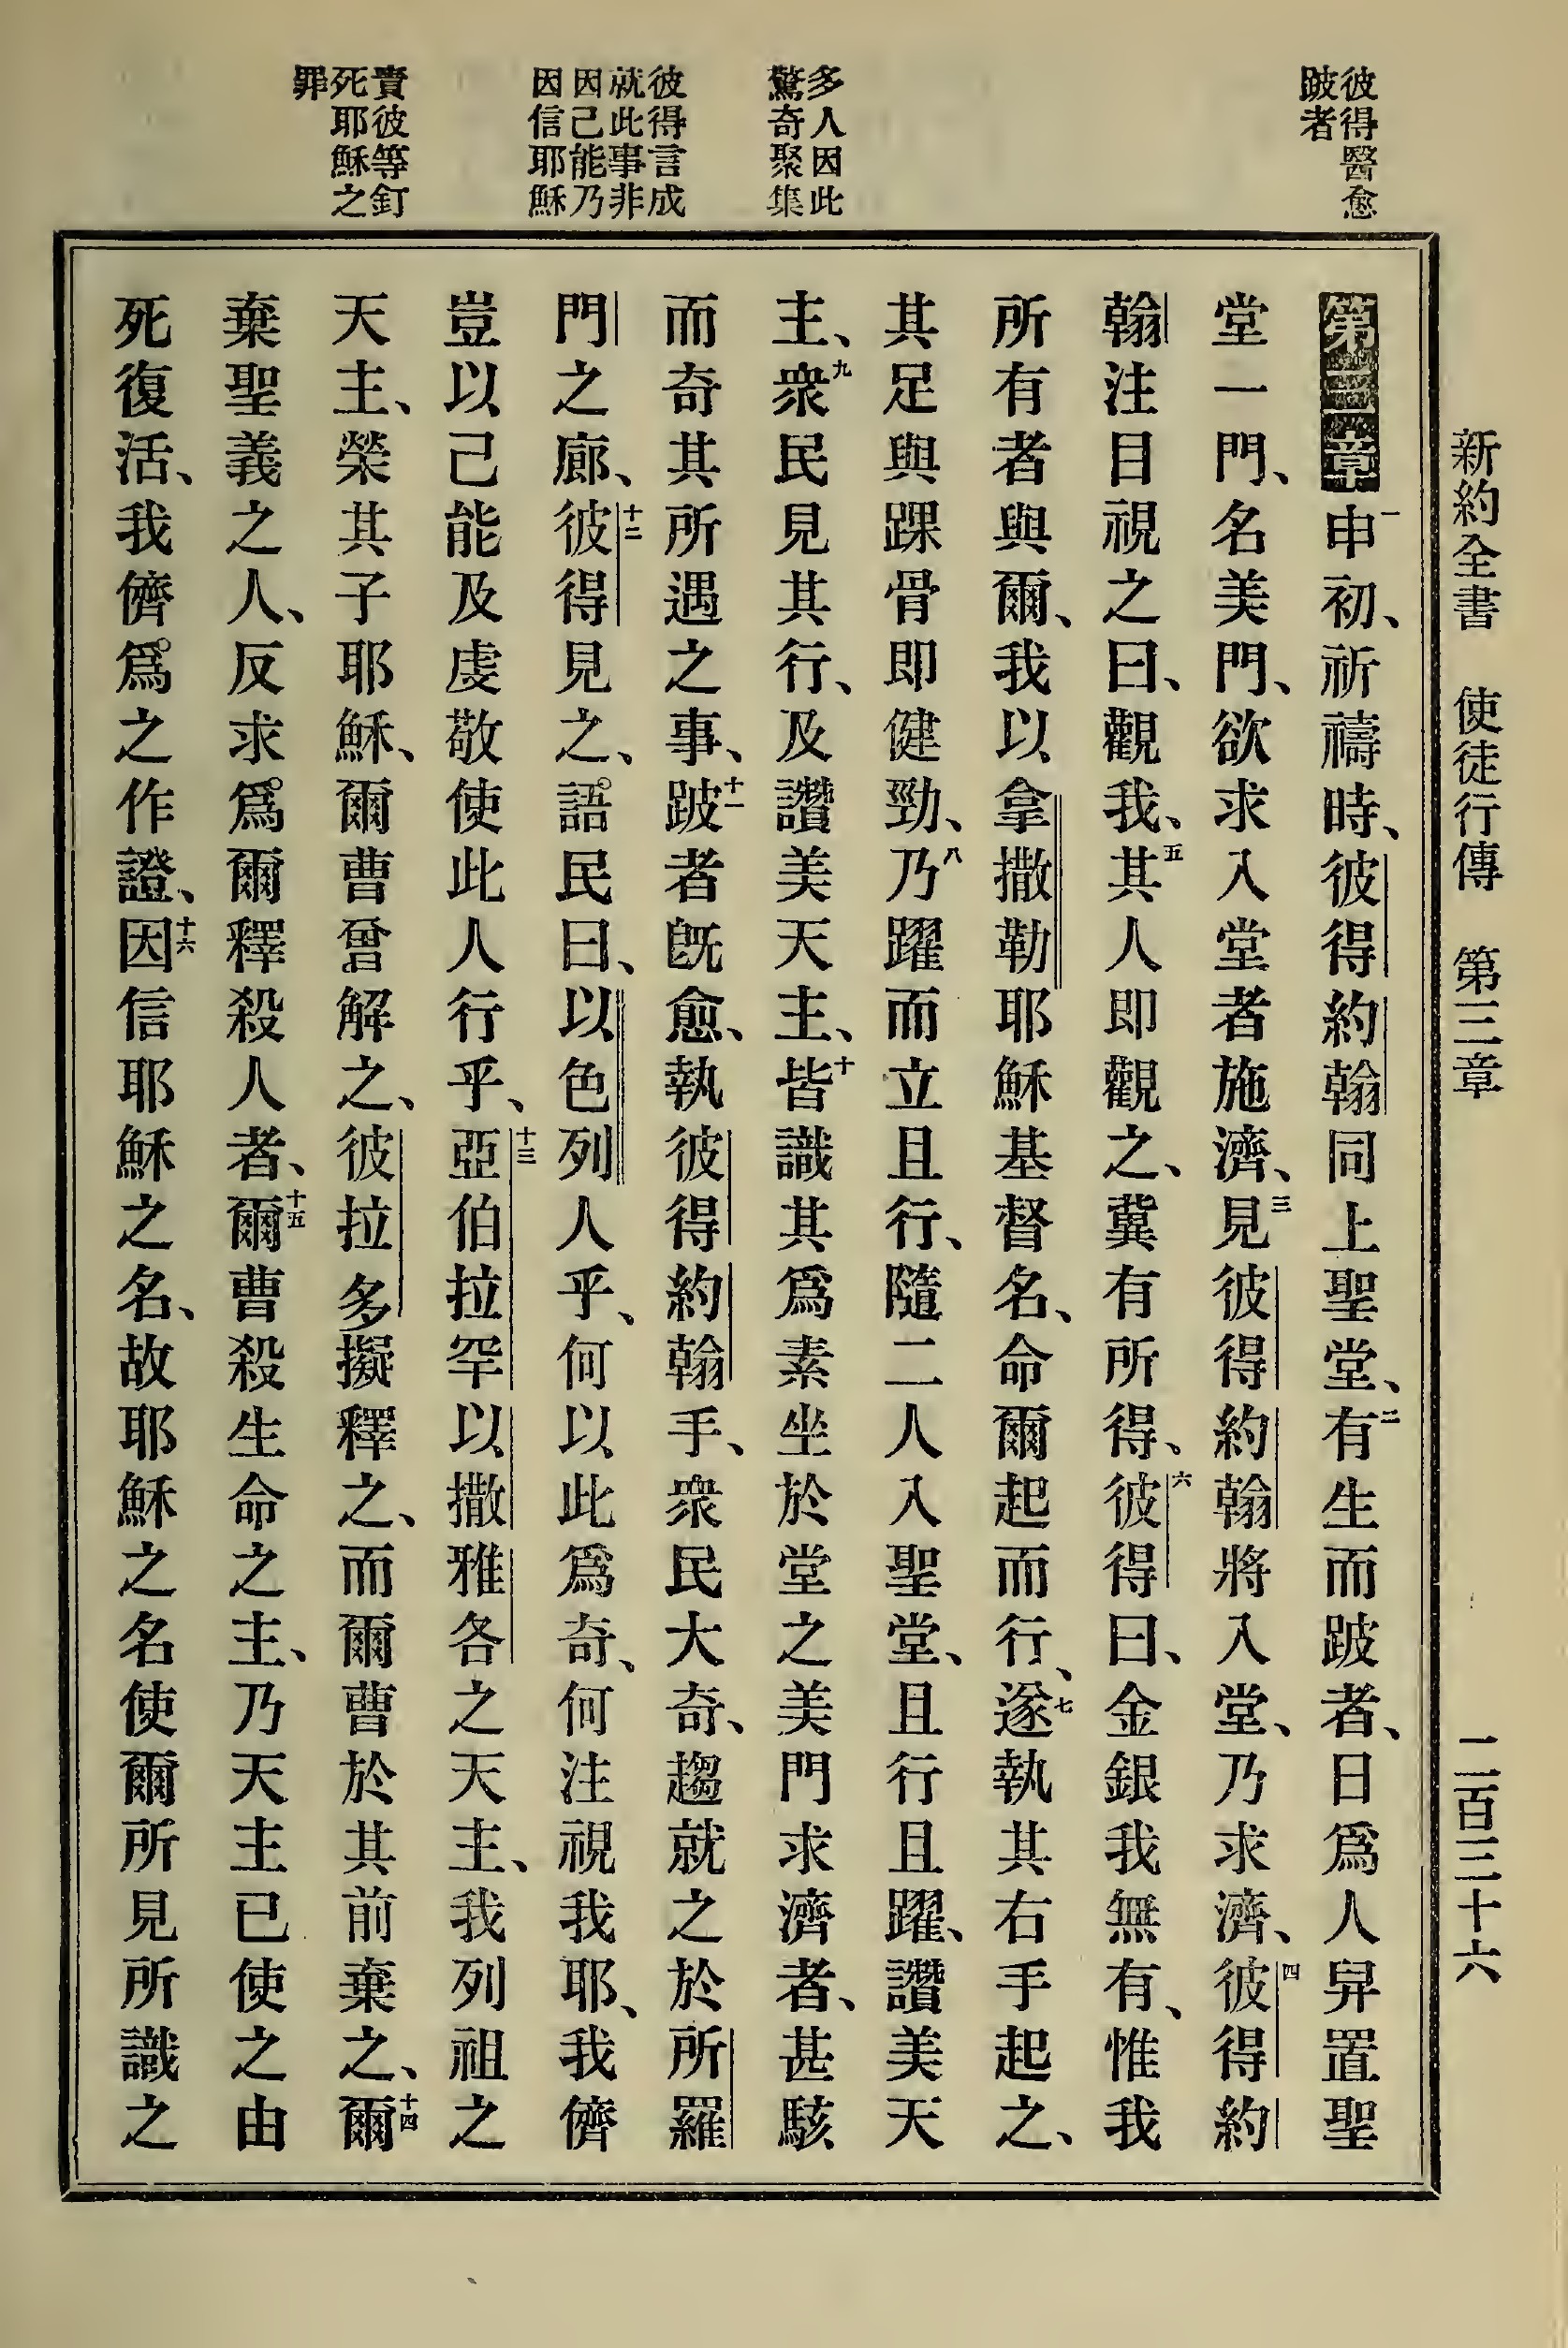 新約全書 使徒行傳 第三章 二百三十六
彼得醫愈
跛者
多人因此
驚奇聚集
彼得言成
就此事非
因己能乃
因信耶穌
責彼等釘
死耶穌之
罪
第三章 一申初、祈禱時、彼得約翰同上聖堂、二有生而跛者、日爲人舁置聖
堂一門、名美門、欲求入堂者施濟、三見彼得約翰將入堂、乃求濟、四彼得約
翰注目視之曰、觀我、五其人即觀之、冀有所得、六彼得曰、金銀我無有、惟我
所有者與爾、我以拿撒勒耶穌基督名、命爾起而行、七遂執其右手起之、
其足與踝骨即健勁、八乃躍而立且行、隨二人入聖堂、且行且躍、讚美天
主、九衆民見其行、及讚美天主、十皆識其爲素坐於堂之美門求濟者、甚駭
而奇其所遇之事、十一跛者旣愈、執彼得約翰手、衆民大奇、趨就之於所羅
門之廊、十二彼得見之、語民曰、以色列人乎、何以此爲奇、何注視我耶、我儕
豈以己能及虔敬使此人行乎、十三亞伯拉罕以撒雅各之天主、我列祖之
天主、榮其子耶穌、爾曹曾解之、彼拉多擬釋之、而爾曹於其前棄之、十四爾
棄聖義之人、反求爲爾釋殺人者、十五爾曹殺生命之主、乃天主已使之由
死復活、我儕爲之作證、十六因信耶穌之名、故耶穌之名使爾所見所識之